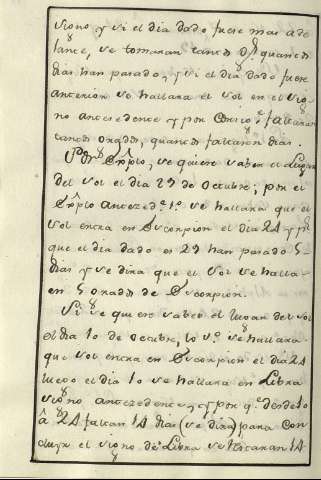 signo, y si el dia dado fuere mas ade
lante, se tomaran tantos gs. quantos
dias han pasado, y si el dia dado fuere
anterior se hallara el Sol en el sig
no antecedente y por faltaran
tantos grados, quantos faltaren dias.
Explo, se quiere saber el Lugar
del Sol el dia 29 de Octubre; por el
Explo anteced.te 1o. se hallara que el
Sol entra en Scorpion el dia 24 y pr.
que el dia dado es 29 han pasado 5
dias y se dira que el Sol se halla
en 5 grados de Scorpion.
Si se quiere saber el lugar del Sol
el dia 10 de Octubre, lo 1o. se hallara
que Sol entra en Scorpion el dia 24
luego el dia 10 se hallara en Libra
signo antecedente, y por q.e desde 10
â 24 faltan 14 dias (se dira) para con
cluyr el signo de Libra se restaran 14